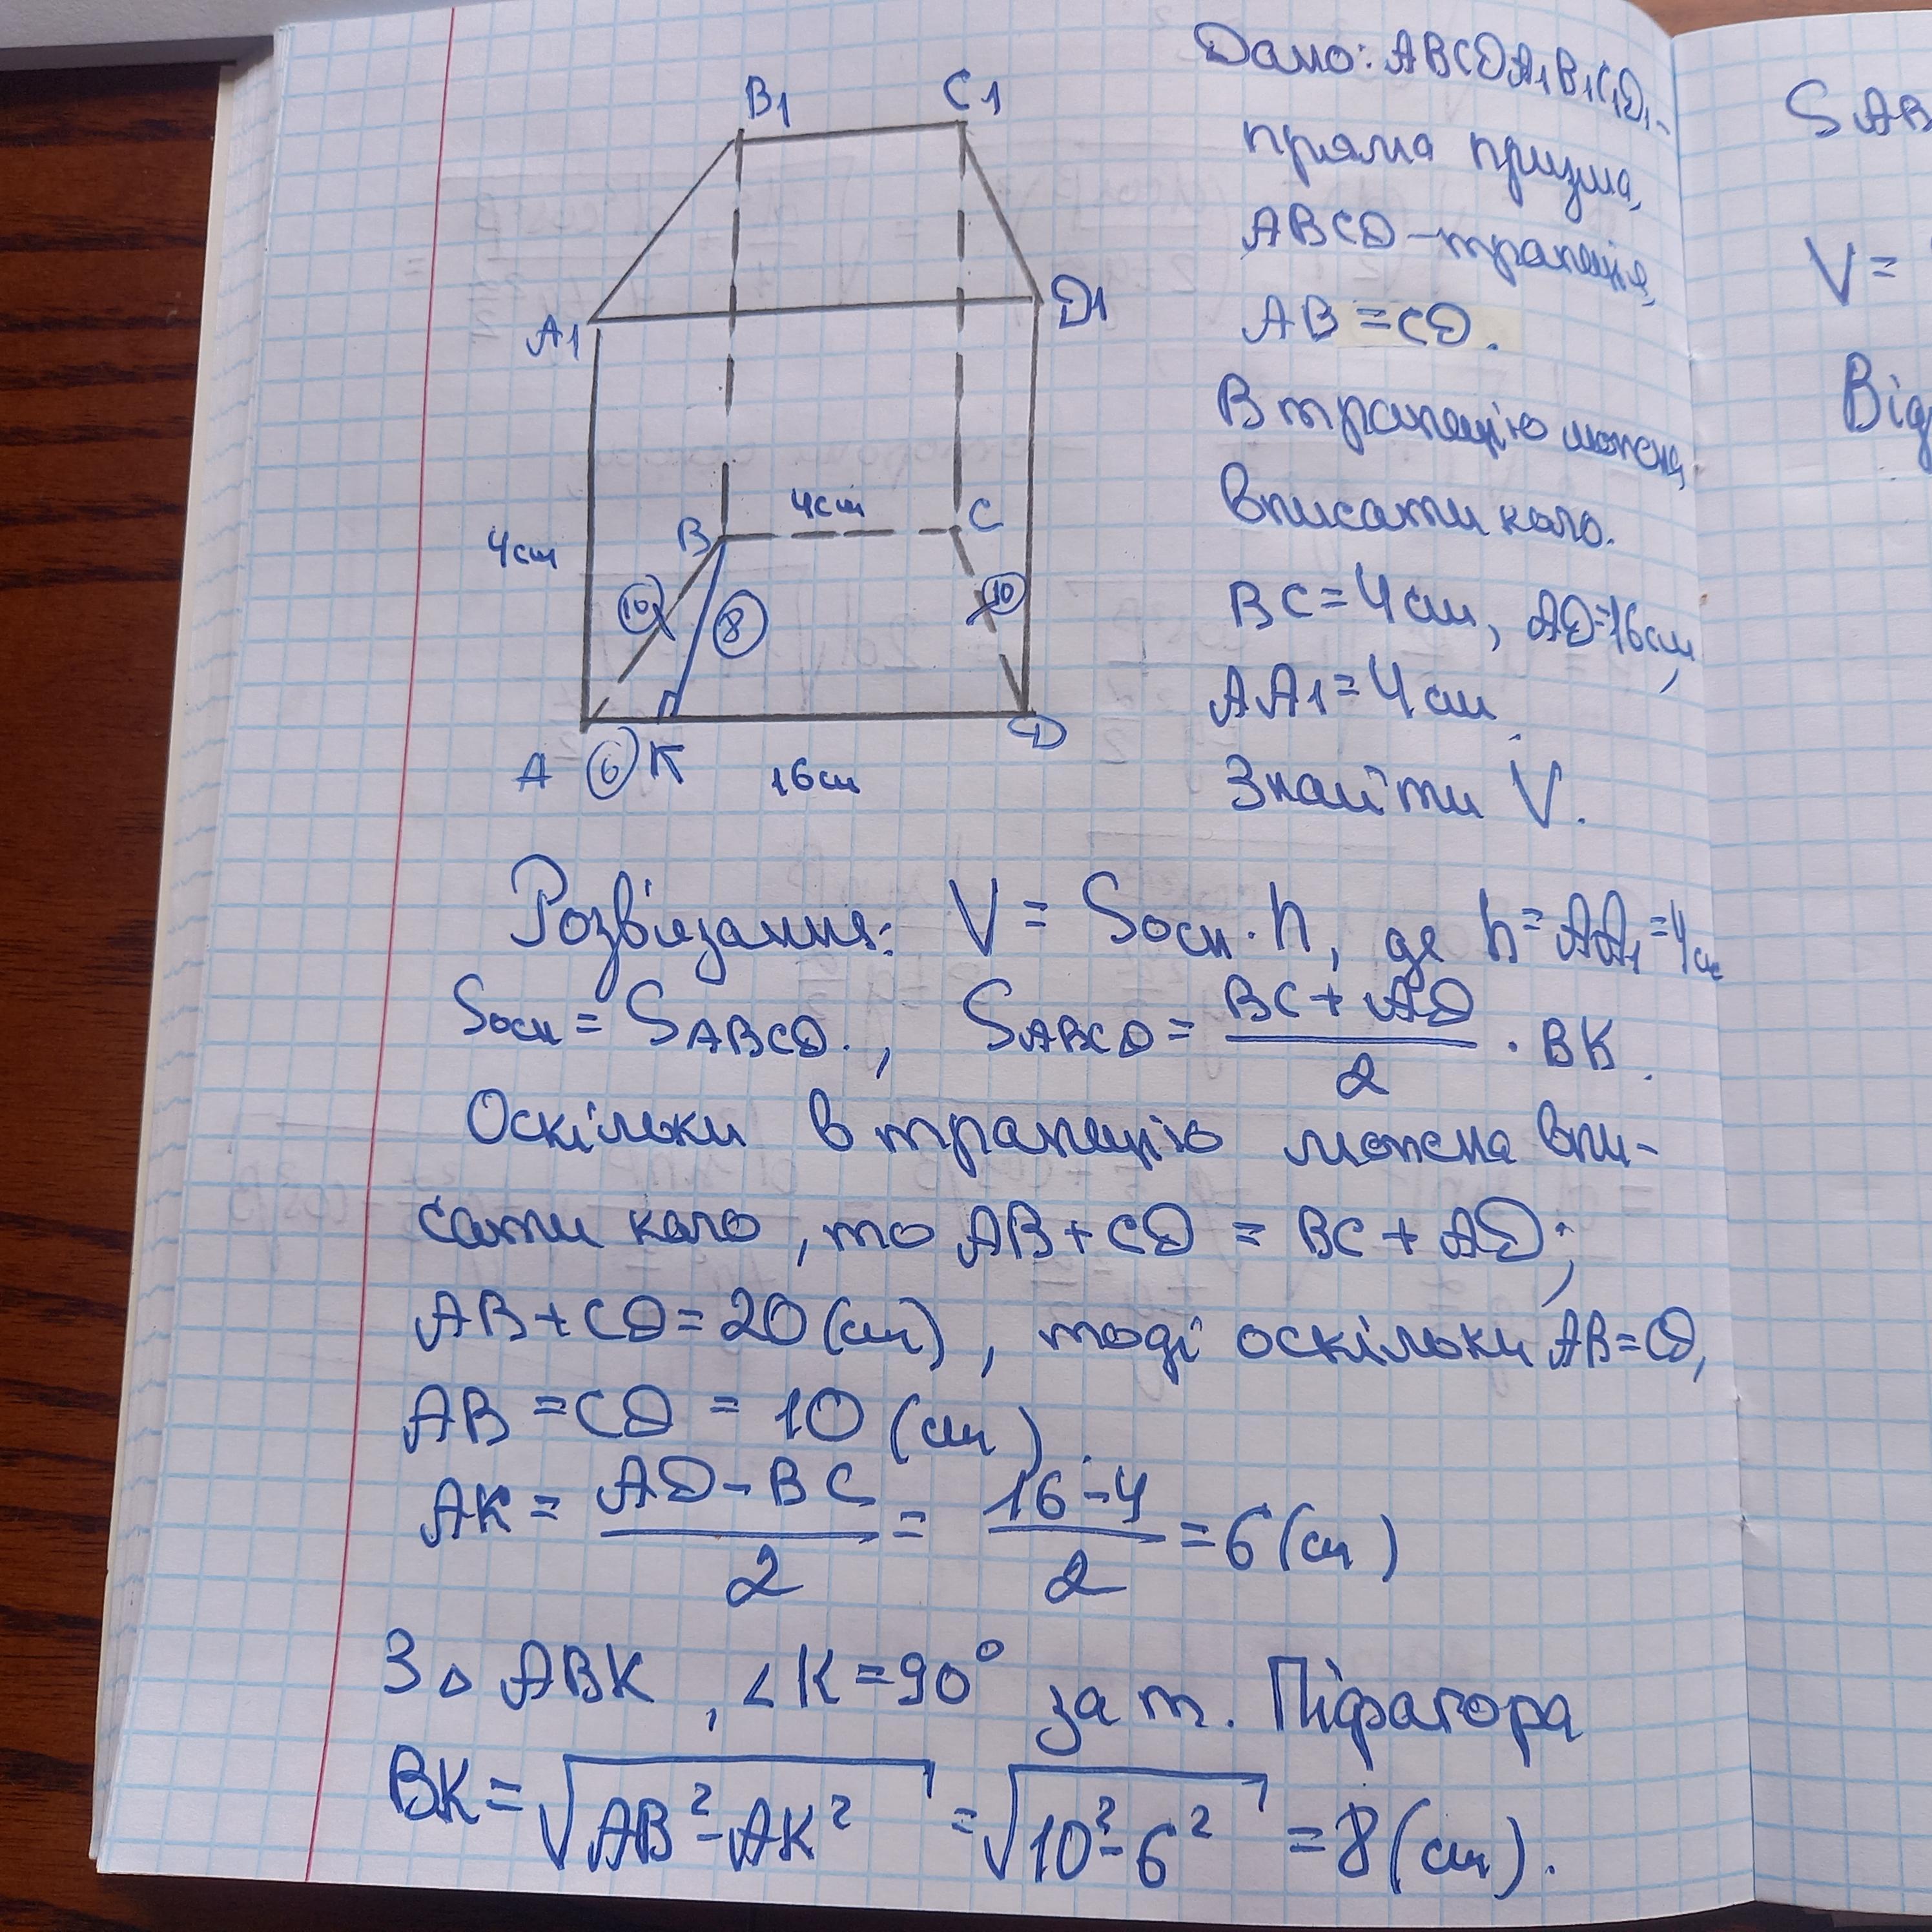 B₁ C₁
A₁ D₁
4см B 4см C
10 8 10
A 6 K 16см D
Дано: ABCDA₁B₁C₁D₁ –
пряма призма,
ABCD – трапеція,
AB = CD.
В трапецію можна
вписати коло.
BC = 4 см, AD = 16 см,
AA₁ = 4 см.
Знайти V.
Розв'язання: V = Sосн · h, де h = AA₁ = 4 см
Sосн = S ABCD., S ABCD = (BC + AD)/2 · BK.
Оскільки в трапецію можна впи-
сати коло, то AB + CD = BC + AD;
AB + CD = 20 (см), тоді оскільки AB = CD,
AB = CD = 10 (см).
AK = (AD - BC)/2 = (16 - 4)/2 = 6 (см)
З △ ABK, ∠K = 90° за т. Піфагора
BK = √(AB² - AK²) = √(10² - 6²) = 8 (см).
S AB
V =
Від